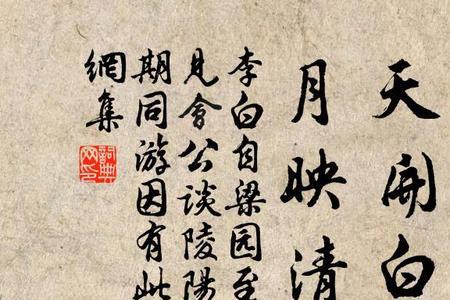 天開白
月映清
李白自梁园至
見會公談陵陽
期同游因有此
網集